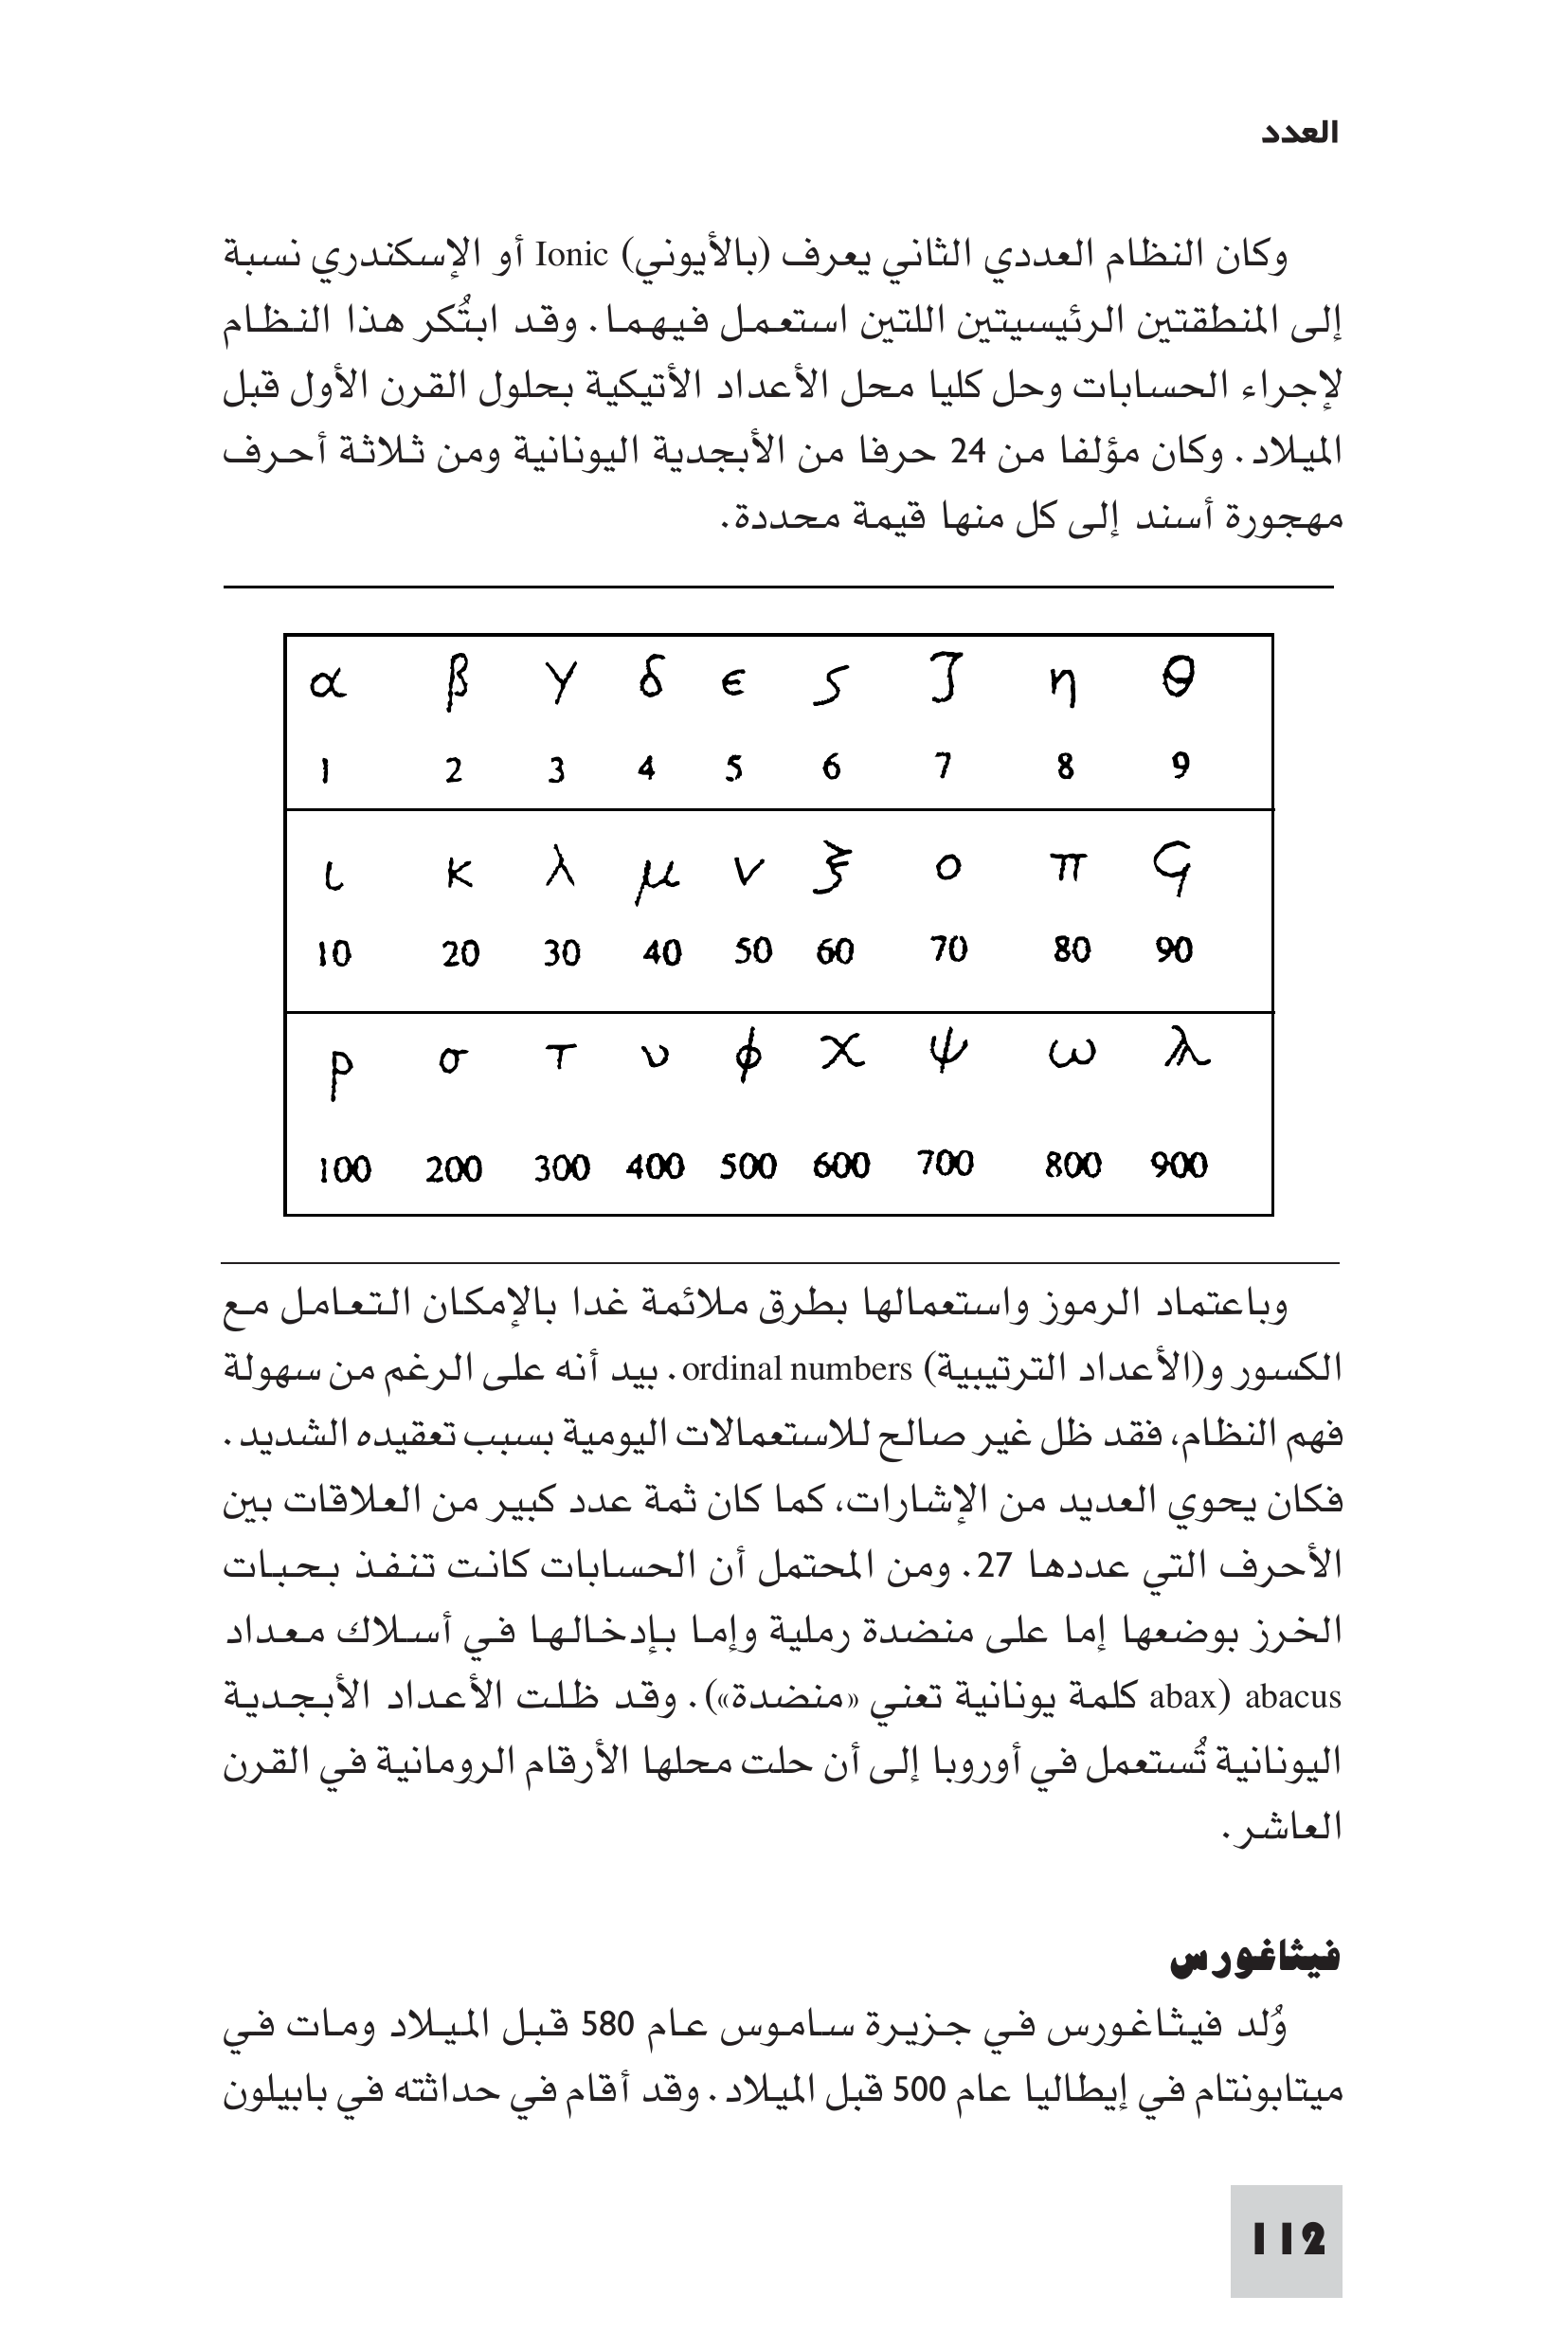 العدد
وكان النظام العددي الثاني يعرف (بالأيوني) Ionic أو الإسكندري نسبة
إلى المنطقتين الرئيسيتين اللتين استعمل فيهما. وقد ابتُكر هذا النظام
لإجراء الحسابات وحل كليا محل الأعداد الأتيكية بحلول القرن الأول قبل
الميلاد. وكان مؤلفا من 24 حرفا من الأبجدية اليونانية ومن ثلاثة أحرف
مهجورة أسند إلى كل منها قيمة محددة.
α β γ δ ϵ ς ζ η θ
1 2 3 4 5 6 7 8 9
ι κ λ μ ν ξ ο π ϟ
10 20 30 40 50 60 70 80 90
ρ σ τ υ φ χ ψ ω ϡ
100 200 300 400 500 600 700 800 900
وباعتماد الرموز واستعمالها بطرق ملائمة غدا بالإمكان التعامل مع
الكسور و(الأعداد الترتيبية) ordinal numbers. بيد أنه على الرغم من سهولة
فهم النظام، فقد ظل غير صالح للاستعمالات اليومية بسبب تعقيده الشديد.
فكان يحوي العديد من الإشارات، كما كان ثمة عدد كبير من العلاقات بين
الأحرف التي عددها 27. ومن المحتمل أن الحسابات كانت تنفذ بحبات
الخرز بوضعها إما على منضدة رملية وإما بإدخالها في أسلاك معداد
abacus (abax كلمة يونانية تعني «منضدة»). وقد ظلت الأعداد الأبجدية
اليونانية تُستعمل في أوروبا إلى أن حلت محلها الأرقام الرومانية في القرن
العاشر.
فيثاغورس
وُلد فيثاغورس في جزيرة ساموس عام 580 قبل الميلاد ومات في
ميتابونتام في إيطاليا عام 500 قبل الميلاد. وقد أقام في حداثته في بابيلون
112